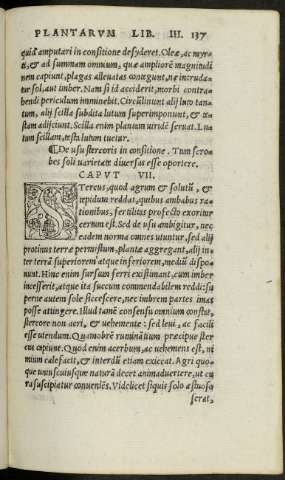 PLANTARVM LIB. III. 137
quid amputari in consitione desyderet. Oleæ, ac myr
ti, & ad summam omnium, quæ ampliorē magnitudi
nem capiunt, plagas alleuatas contegunt, næ intrudæ
tur sol, aut imber. Nam si id acciderit, morbi contra
hendi periculum imminebit. Circulliniunt alij luto tan
tum, alij scilla subdita lutum superimponunt, &
stam adijciunt. Scilla enim plantam uiridē seruat. Lu
tum scillam, testa lutum tuetur.
De usu stercoris in consitione. Tum scro
bes soli uarietate diuersas esse oportere.
CAPVT VII.
STercus, quod agrum & solutū, &
tepidum reddat, quibus ambabus ra
tionibus, fertilitas profecto exoritur
cernum est. Sed de usu ambigitur, nec
eodem norma omnes utuntur, sed alij
protinus terra permistum, plantæ aggregant, alij in
ter terrā superiorem atque inferiorem, mediū dispo
nunt. Hinc enim sursum ferri existimant, cum imber
incesserit, atque ita succum commendabilem reddi: su
perne autem sole siccescere, nec imbrem partes imas
posse attingere. Illud tamē consensu omnium constat,
stercore non acri, & uehemente: sed leui, ac facili
esse utendum. Quamobrē ruminātium præcipue ster
cus capiunt. Quod enim acerbum, ac uehement est, ni
mium calefacit, & interdū etiam exiccat. Agri quo
que uniuscuiusque naturā decet animaduertere, ut cu
ra suscipiatur conueniēs. Videlicet siquis solo æstuoso
serat,